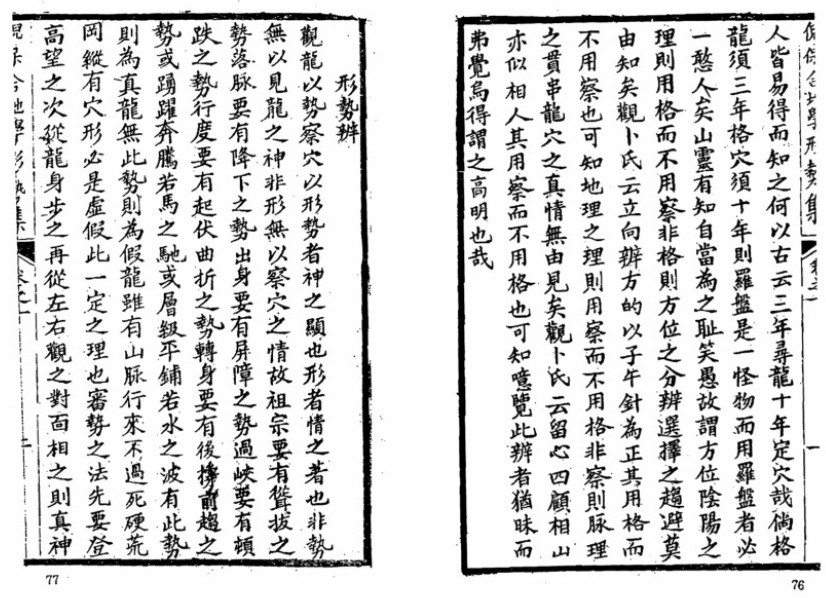 人皆易得而知之何以古云三年尋龍十年定穴哉倘格
龍須三年格穴須十年則羅盤是一怪物而用羅盤者必
一憨人矣山靈有知自當為之恥笑愚故謂方位陰陽之
理則用格而不用察非格則方位之分辨選擇之趨避莫
由知矣觀卜氏云立向辨方的以子午針為正其用格而
不用察也可知地理之理則用察而不用格非察則脉理
之貫串龍穴之真情無由見矣觀卜氏云留心四顧相山
亦似相人其用察而不用格也可知噫覽此辨者猶昧而
弗覺烏得謂之高明也哉
76
形勢辨
觀龍以勢察穴以形勢者神之顯也形者情之著也非勢
無以見龍之神非形無以察穴之情故祖宗要有聳拔之
勢落脉要有降下之勢出身要有屏障之勢過峽要有頓
跌之勢行度要有起伏曲折之勢轉身要有後撐前趨之
勢或踴躍奔騰若馬之馳或層級平鋪若水之波有此勢
則為真龍無此勢則為假龍雖有山脉行來不過死硬荒
岡縱有穴形必是虛假此一定之理也審勢之法先要登
高望之次從龍身步之再從左右觀之對面相之則真神
77